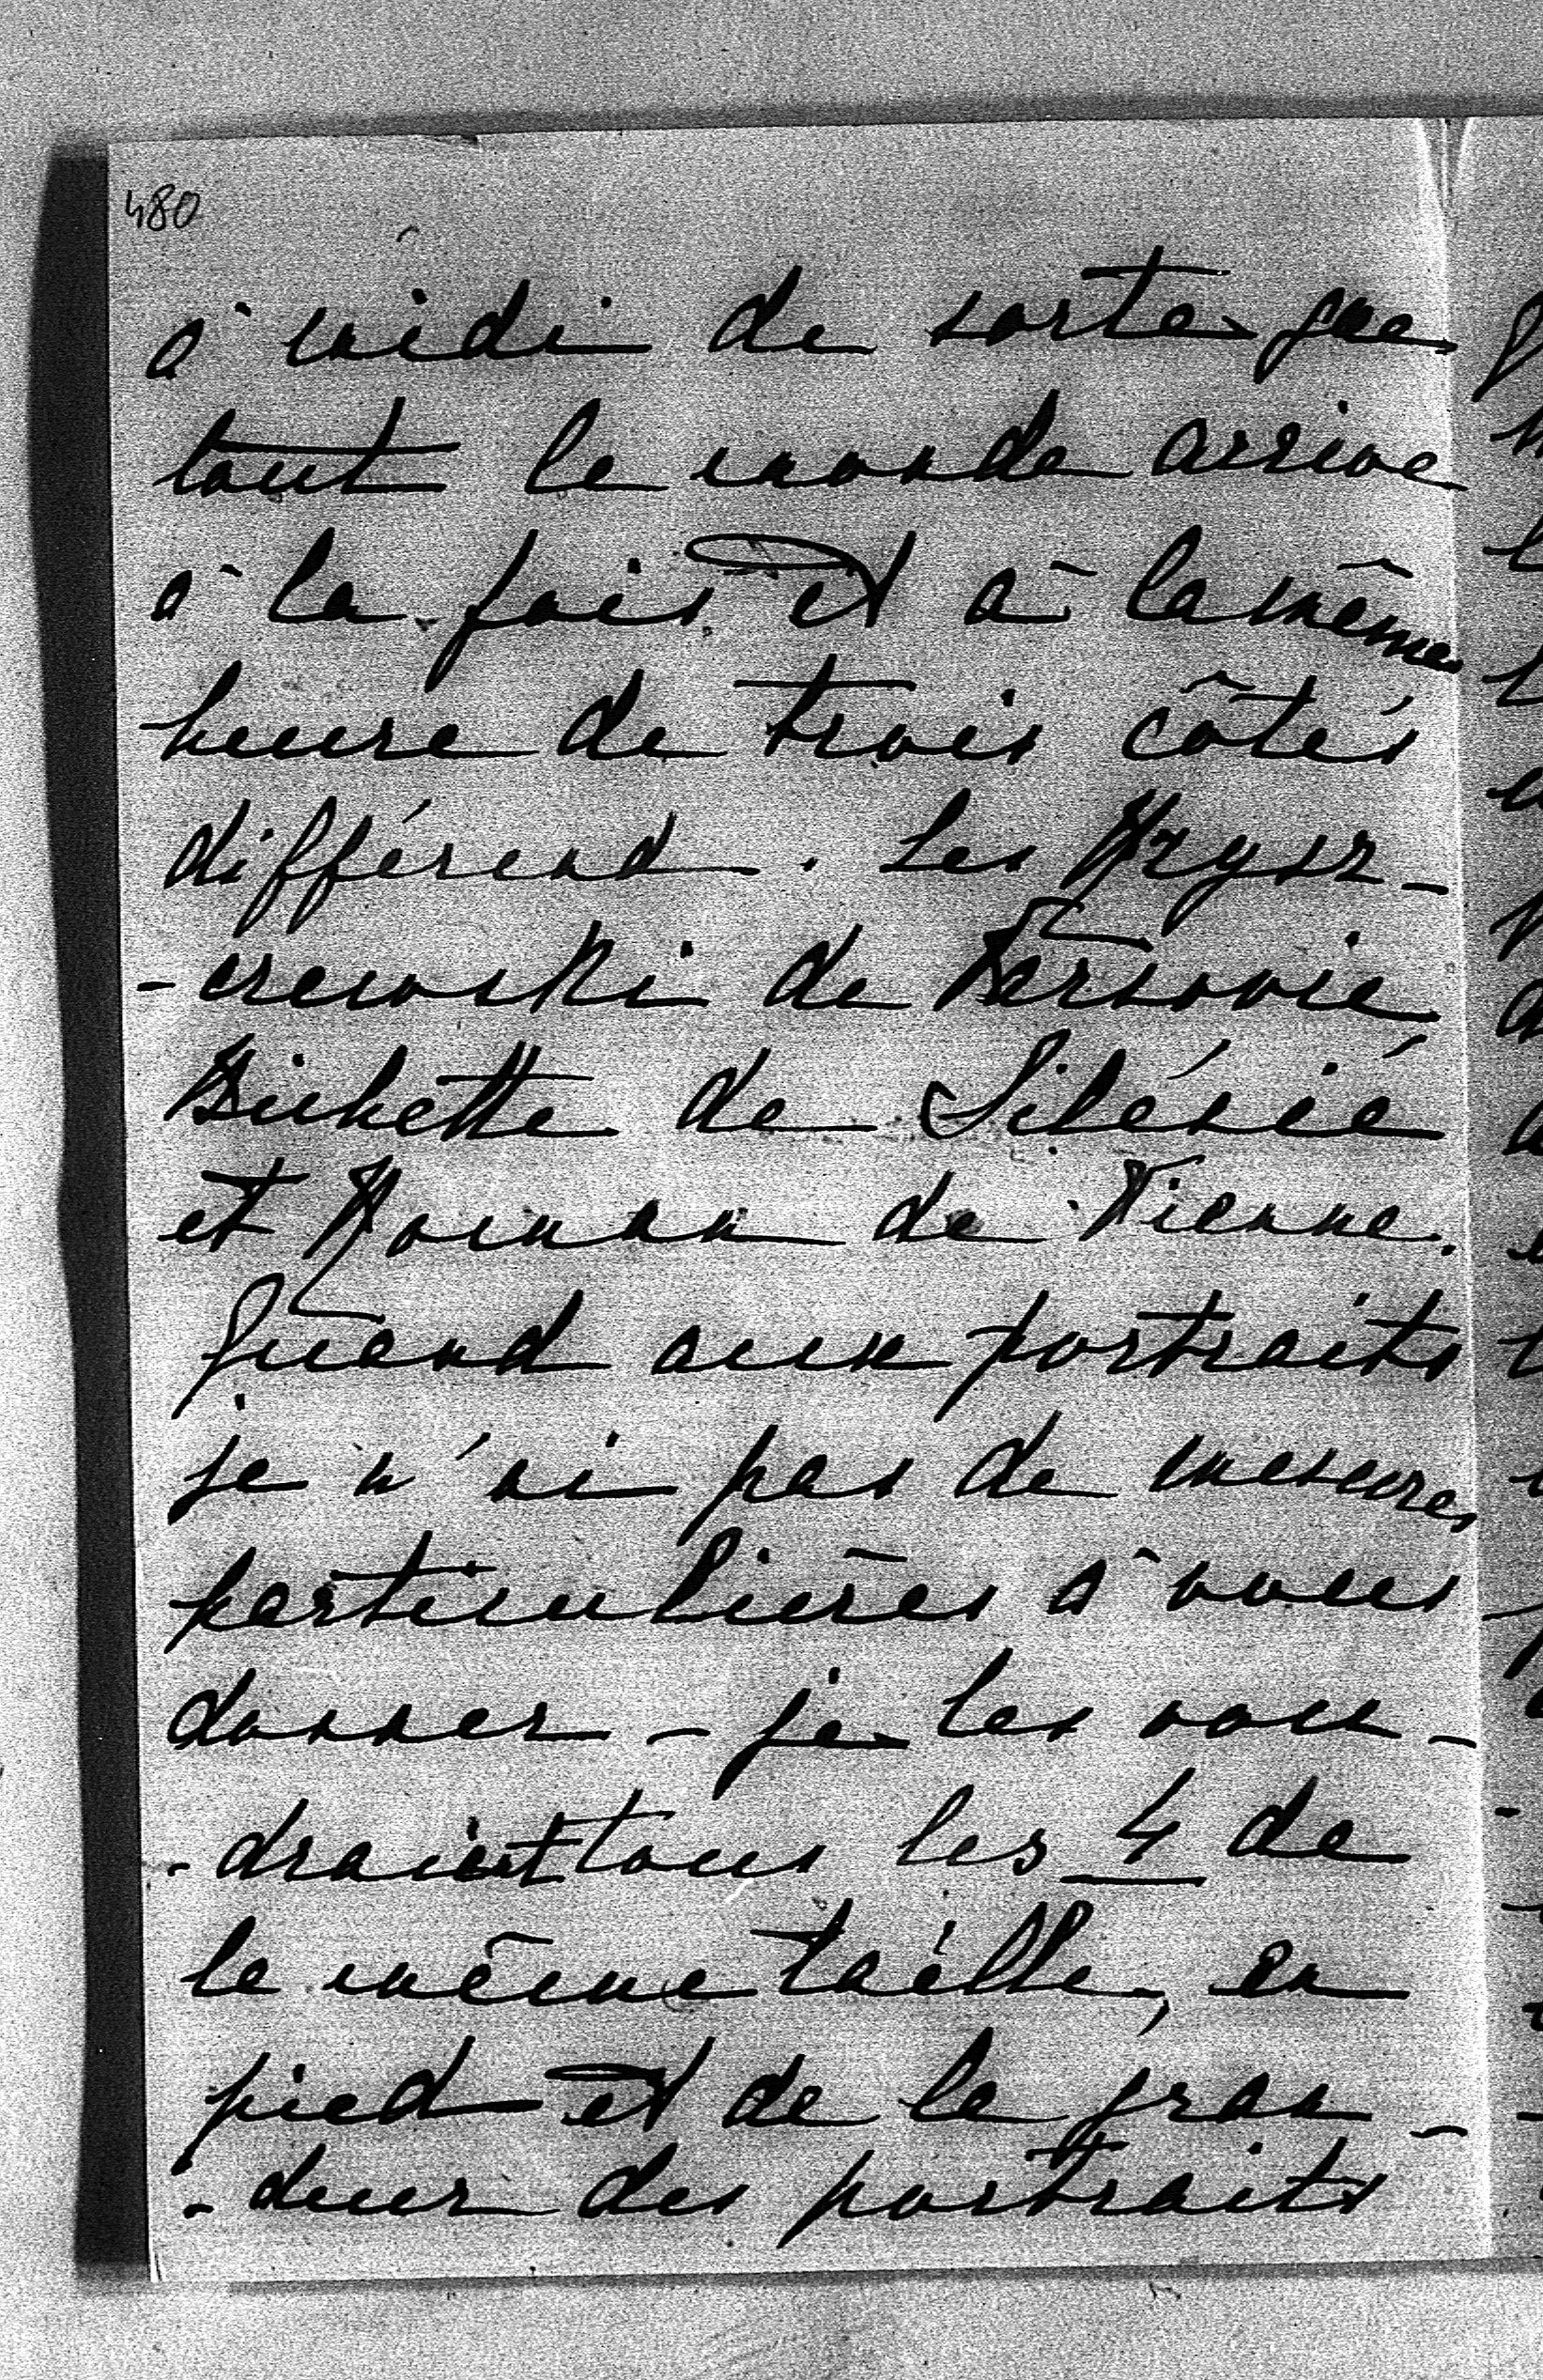 480
à midi de sorte que
tout le monde arrive
à la fois et à la même
heure de trois côtés
différend. Les Krysz-
-crewski de Varsovie
Bichette de Silésie
et Roman de Vienne.
Quand aux portraits
je n'ai pas de mesures
particulières à vous
donner - je les vou-
-drais tous les 4 de
la même taille, en
pied et de la gran-
-deur des portraits